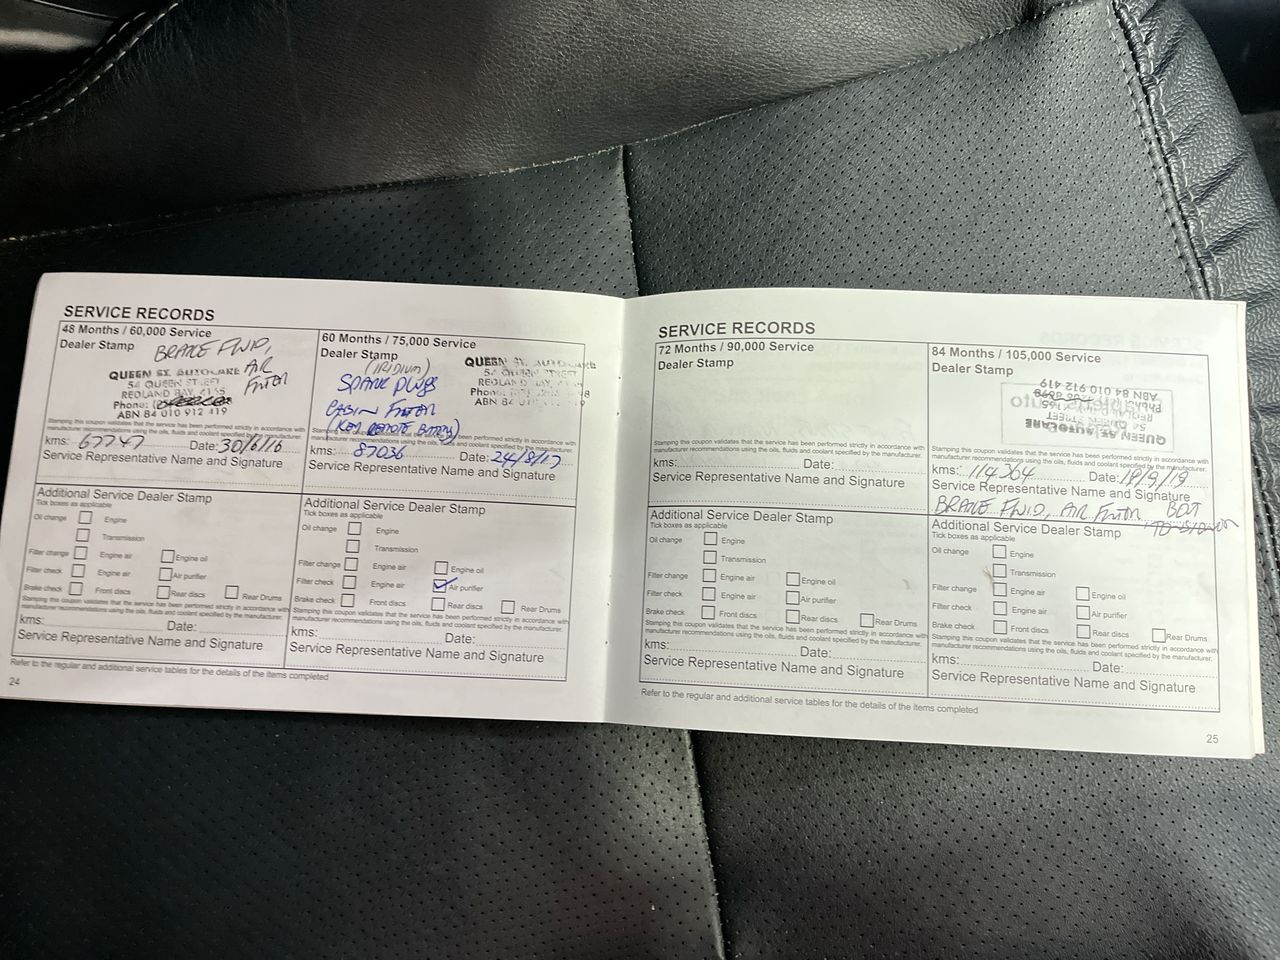 SERVICE RECORDS
48 Months / 60,000 Service
Dealer Stamp
BRAKE FLUID,
AIR
FILTER
QUEEN ST. AUTOCARE
54 QUEEN STREET
REDLAND BAY, 4165
Phone:
ABN 84 010 912 419
Stamping this coupon validates that the service has been performed strictly in accordance with
manufacturer recommendations using the oils, fluids and coolant specified by the manufacturer.
kms: 67747 Date: 30/6/16
Service Representative Name and Signature
Additional Service Dealer Stamp
Tick boxes as applicable
Oil change Engine
Transmission
Filter change Engine air Engine oil
Filter check Engine air Air purifier
Brake check Front discs Rear discs Rear Drums
Stamping this coupon validates that the service has been performed strictly in accordance with
manufacturer recommendations using the oils, fluids and coolant specified by the manufacturer.
kms: Date:
Service Representative Name and Signature
Refer to the regular and additional service tables for the details of the items completed
24
60 Months / 75,000 Service
Dealer Stamp
(IRIDIUM)
SPARK PLUGS
CABIN FILTER
(KEY REMOTE BATTERY)
QUEEN ST. AUTOCARE
54 QUEEN STREET
REDLAND BAY,
Phone:
ABN 84
Stamping this coupon validates that the service has been performed strictly in accordance with
manufacturer recommendations using the oils, fluids and coolant specified by the manufacturer.
kms: 87036 Date: 24/8/17
Service Representative Name and Signature
Additional Service Dealer Stamp
Tick boxes as applicable
Oil change Engine
Transmission
Filter change Engine air Engine oil
Filter check Engine air Air purifier
Brake check Front discs Rear discs Rear Drums
Stamping this coupon validates that the service has been performed strictly in accordance with
manufacturer recommendations using the oils, fluids and coolant specified by the manufacturer.
kms: Date:
Service Representative Name and Signature
SERVICE RECORDS
72 Months / 90,000 Service
Dealer Stamp
Stamping this coupon validates that the service has been performed strictly in accordance with
manufacturer recommendations using the oils, fluids and coolant specified by the manufacturer.
kms: Date:
Service Representative Name and Signature
Additional Service Dealer Stamp
Tick boxes as applicable
Oil change Engine
Transmission
Filter change Engine air Engine oil
Filter check Engine air Air purifier
Brake check Front discs Rear discs Rear Drums
Stamping this coupon validates that the service has been performed strictly in accordance with
manufacturer recommendations using the oils, fluids and coolant specified by the manufacturer.
kms: Date:
Service Representative Name and Signature
Refer to the regular and additional service tables for the details of the items completed
84 Months / 105,000 Service
Dealer Stamp
QUEEN ST. AUTOCARE
54 QUEEN STREET
ABN 84 010 912 419
Stamping this coupon validates that the service has been performed strictly in accordance with
manufacturer recommendations using the oils, fluids and coolant specified by the manufacturer.
kms: 114364 Date: /9/19
Service Representative Name and Signature
BRAKE FLUID, AIR FILTER
Additional Service Dealer Stamp
Tick boxes as applicable
Oil change Engine
Transmission
Filter change Engine air Engine oil
Filter check Engine air Air purifier
Brake check Front discs Rear discs Rear Drums
Stamping this coupon validates that the service has been performed strictly in accordance with
manufacturer recommendations using the oils, fluids and coolant specified by the manufacturer.
kms: Date:
Service Representative Name and Signature
25